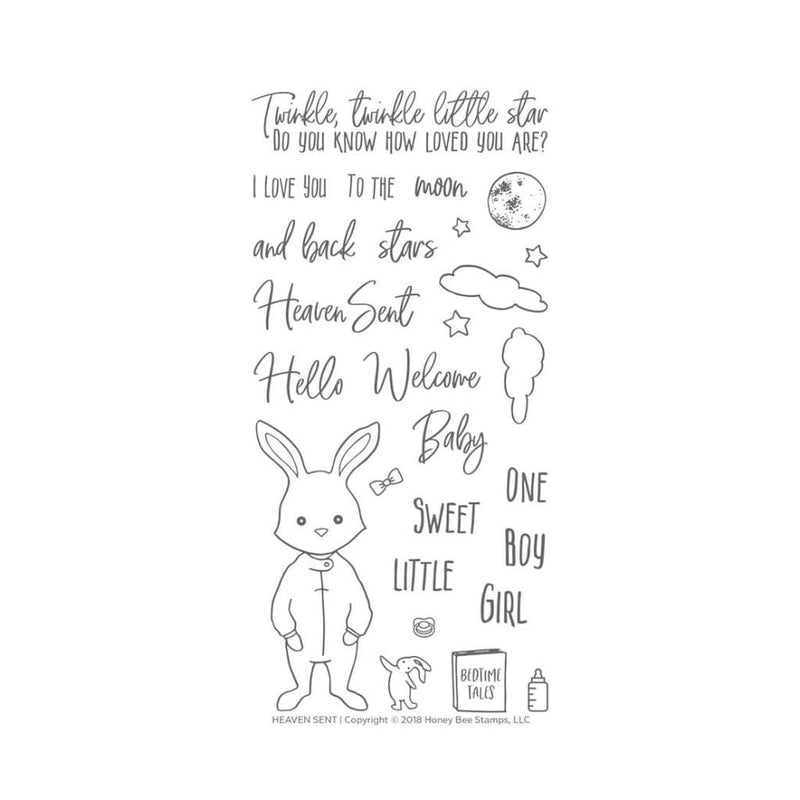 Twinkle, twinkle little star
DO YOU KNOW HOW LOVED YOU ARE?
I LOVE YOU TO THE moon
and back stars
Heaven Sent
Hello Welcome
Baby
ONE
SWEET
BOY
LITTLE
GIRL
BEDTIME
TALES
HEAVEN SENT | Copyright © 2018 Honey Bee Stamps, LLC